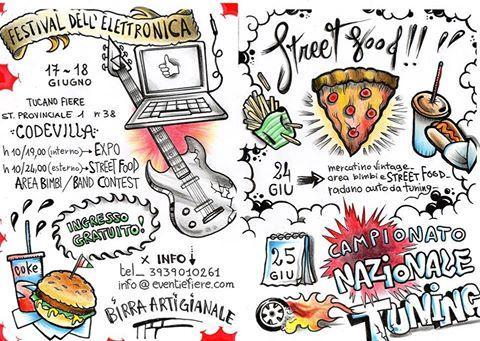 FESTIVAL DELL'ELETTRONICA
17~18
GIUGNO
TUCANO FIERE
ST. PROVINCIALE 1 n°38
CODEVILLA
h 10/19,00 (interno) → EXPO
h 10/24,00 (esterno) → STREET FOOD
AREA BIMBI / BAND CONTEST
INGRESSO
GRATUITO!
COKE
× INFO ↓
tel_ 3939010261
info @ eventiefiere.com
BIRRA ARTIGIANALE
Street food!!
24
GIU
mercatino vintage_
area bimbi e STREET FOOD_
raduno auto da tuning_
25
GIU
CAMPIONATO
NAZIONALE
TUNING